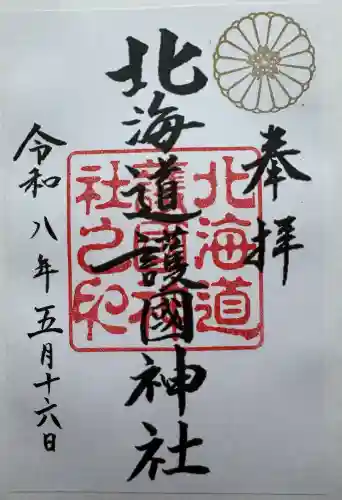 奉拝
北海道護國神社
北海道
護國神
社之印
令和八年五月十六日